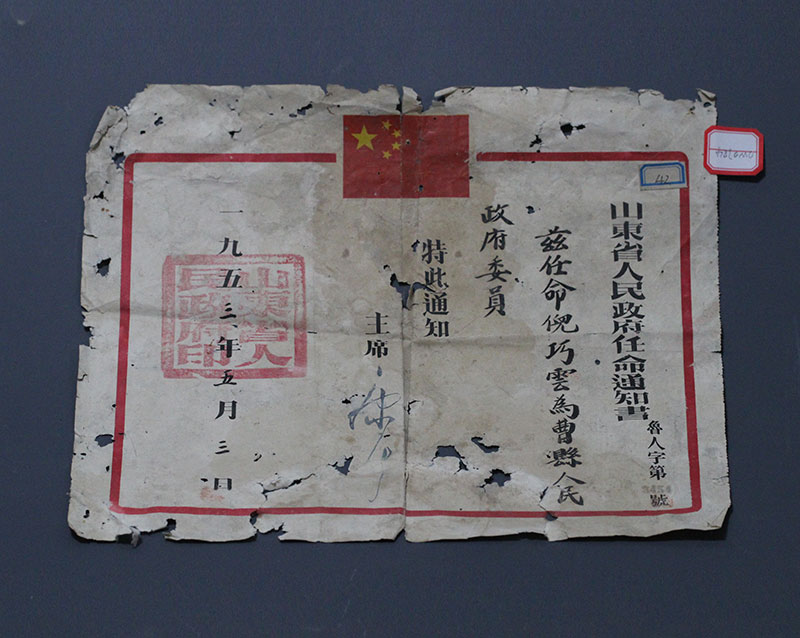 山東省人民政府任命通知書
魯人字第
號
茲任命倪巧雲為曹縣人民
政府委員
特此通知
主席
一九五三年五月三日
山東省人
民政府印
142